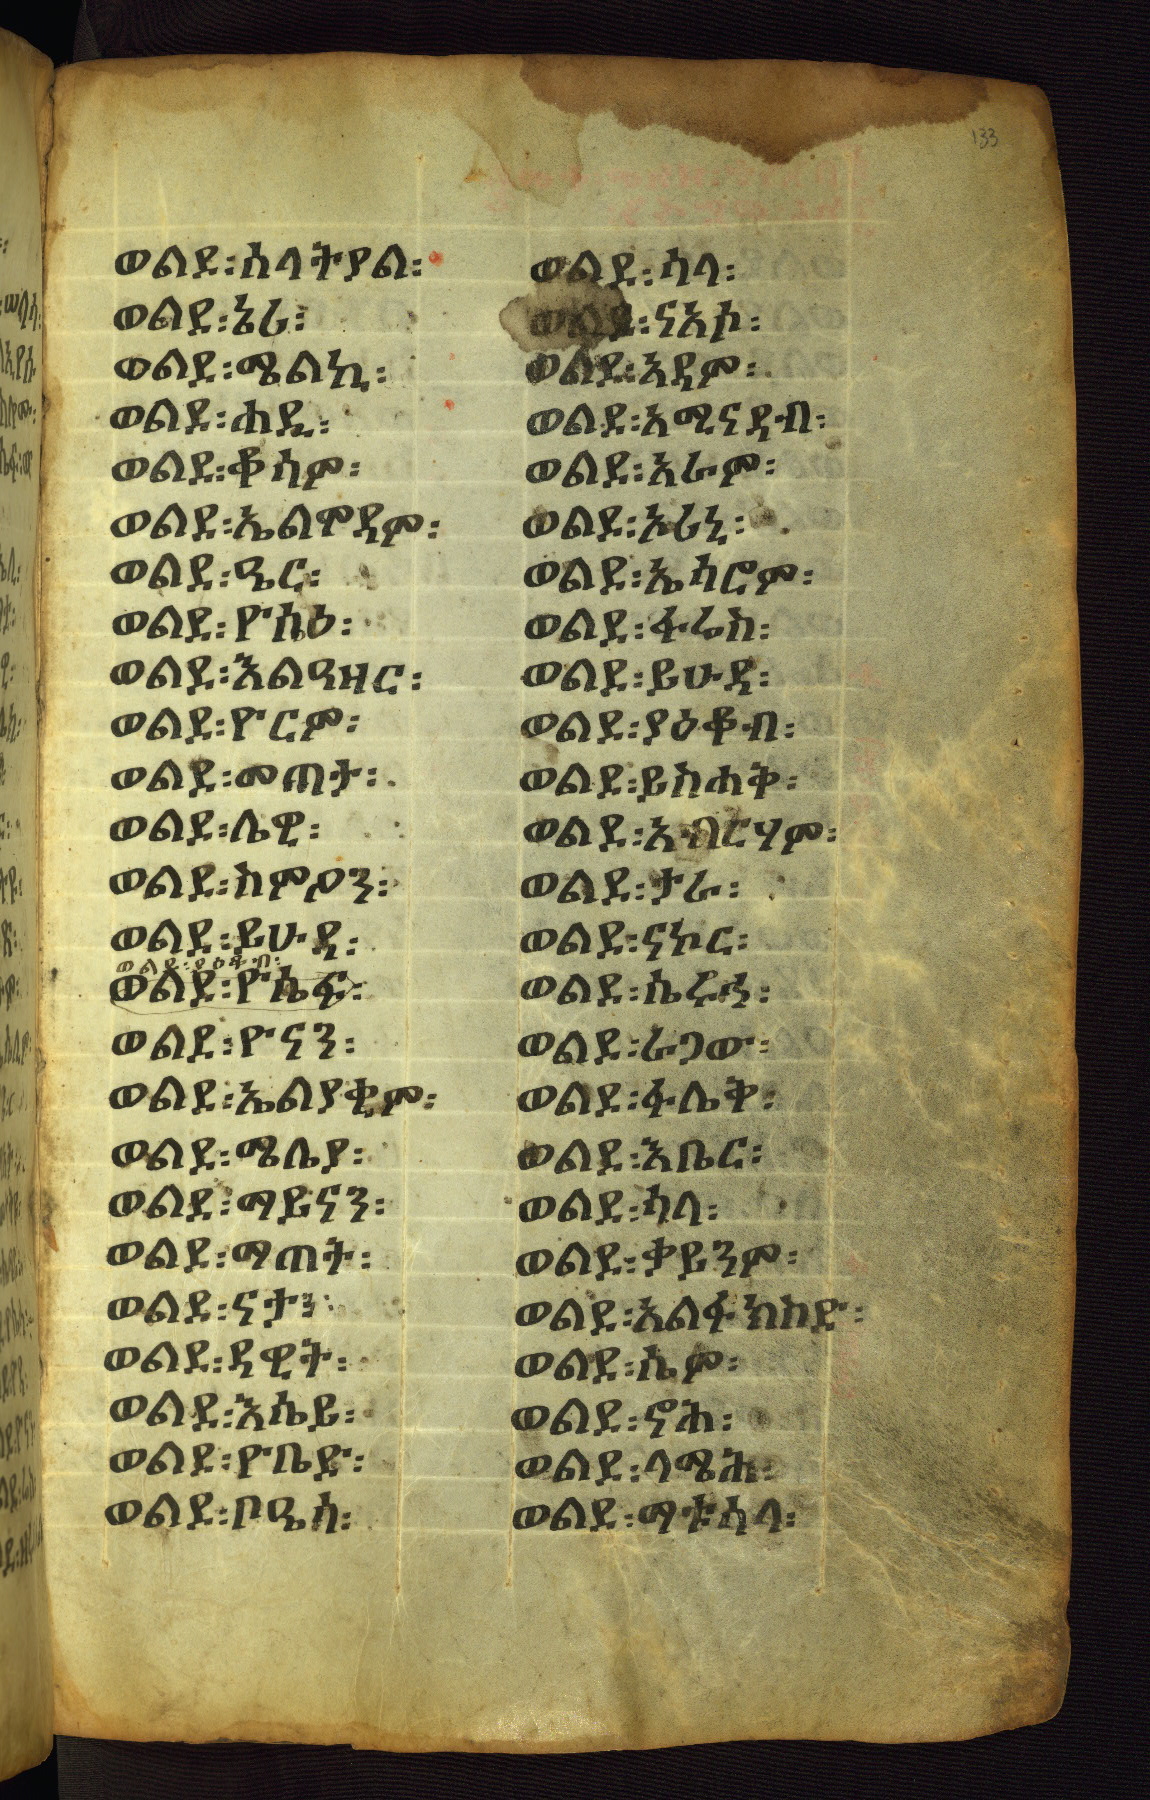 133
ወልደ፡ሰላትያል፡
ወልደ፡ኔሪ፡
ወልደ፡ሜልኪ፡
ወልደ፡ሐዲ፡
ወልደ፡ቆሳም፡
ወልደ፡ኤልሞዳም፡
ወልደ፡ዔር፡
ወልደ፡ዮሴዕ፡
ወልደ፡አልዓዘር፡
ወልደ፡ዮርም፡
ወልደ፡መጠታ፡
ወልደ፡ሌዊ፡
ወልደ፡ስምዖን፡
ወልደ፡ይሁዳ፡
ወልደ፡ያዕቆብ፡
ወልደ፡ዮሴፍ፡
ወልደ፡ዮናን፡
ወልደ፡ኤልያቂም፡
ወልደ፡ሜሌያ፡
ወልደ፡ማይናን፡
ወልደ፡ማጠት፡
ወልደ፡ናታን፡
ወልደ፡ዳዊት፡
ወልደ፡እሴይ፡
ወልደ፡ዮቤድ፡
ወልደ፡ቦዔስ፡
ወልደ፡ሳላ፡
ወልደ፡ናአሶ፡
ወልደ፡አዳም፡
ወልደ፡አሚናዳብ፡
ወልደ፡አራም፡
ወልደ፡አሪኒ፡
ወልደ፡ኤሳሮም፡
ወልደ፡ፋሬስ፡
ወልደ፡ይሁዳ፡
ወልደ፡ያዕቆብ፡
ወልደ፡ይስሐቅ፡
ወልደ፡አብርሃም፡
ወልደ፡ታራ፡
ወልደ፡ናኮር፡
ወልደ፡ሴሮኅ፡
ወልደ፡ራጋው፡
ወልደ፡ፋሌቅ፡
ወልደ፡አቤር፡
ወልደ፡ሳላ፡
ወልደ፡ቃይንም፡
ወልደ፡አልፋክስድ፡
ወልደ፡ሴም፡
ወልደ፡ኖሕ፡
ወልደ፡ላሜሕ፡
ወልደ፡ማቱሳላ፡